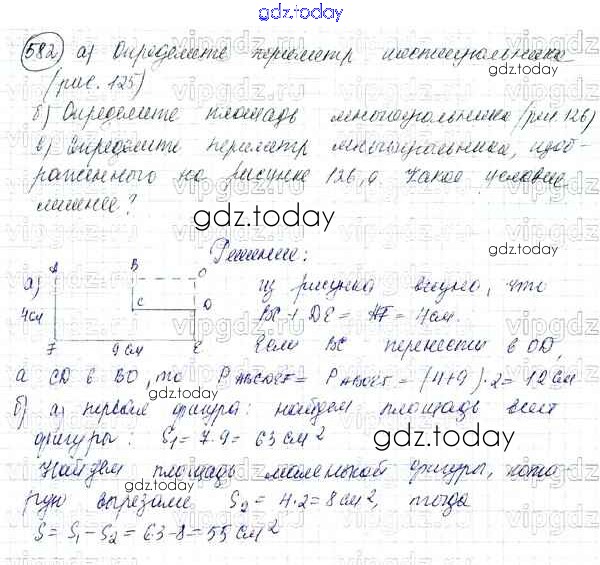 gdz.today
582 а) Определите периметр шестиугольника
gdz.today
(рис. 125)
б) Определите площадь многоугольника (рис 126)
в) Определите периметр многоугольника, изоб-
раженного на рисунке 126, а. Какое условие
лишнее?
gdz.today
Решение:
A B O
а) из рисунка видно, что
C D
4см BC + DE = AF = 4см.
F 9 см E Если BC перенести в OD,
а CD в BO, то P ABCDEF = P ABOEF = (4+9)·2=12 см
gdz.today
б) а) первая фигура: найдем площадь всей
gdz.today
фигуры: S1 = 7·9 = 63 см2
Найдем площадь маленькой фигуры, кото-
рую вырезали S2 = 4·2 = 8 см2, тогда
S = S1 – S2 = 63-8 = 55 см2
gdz.today